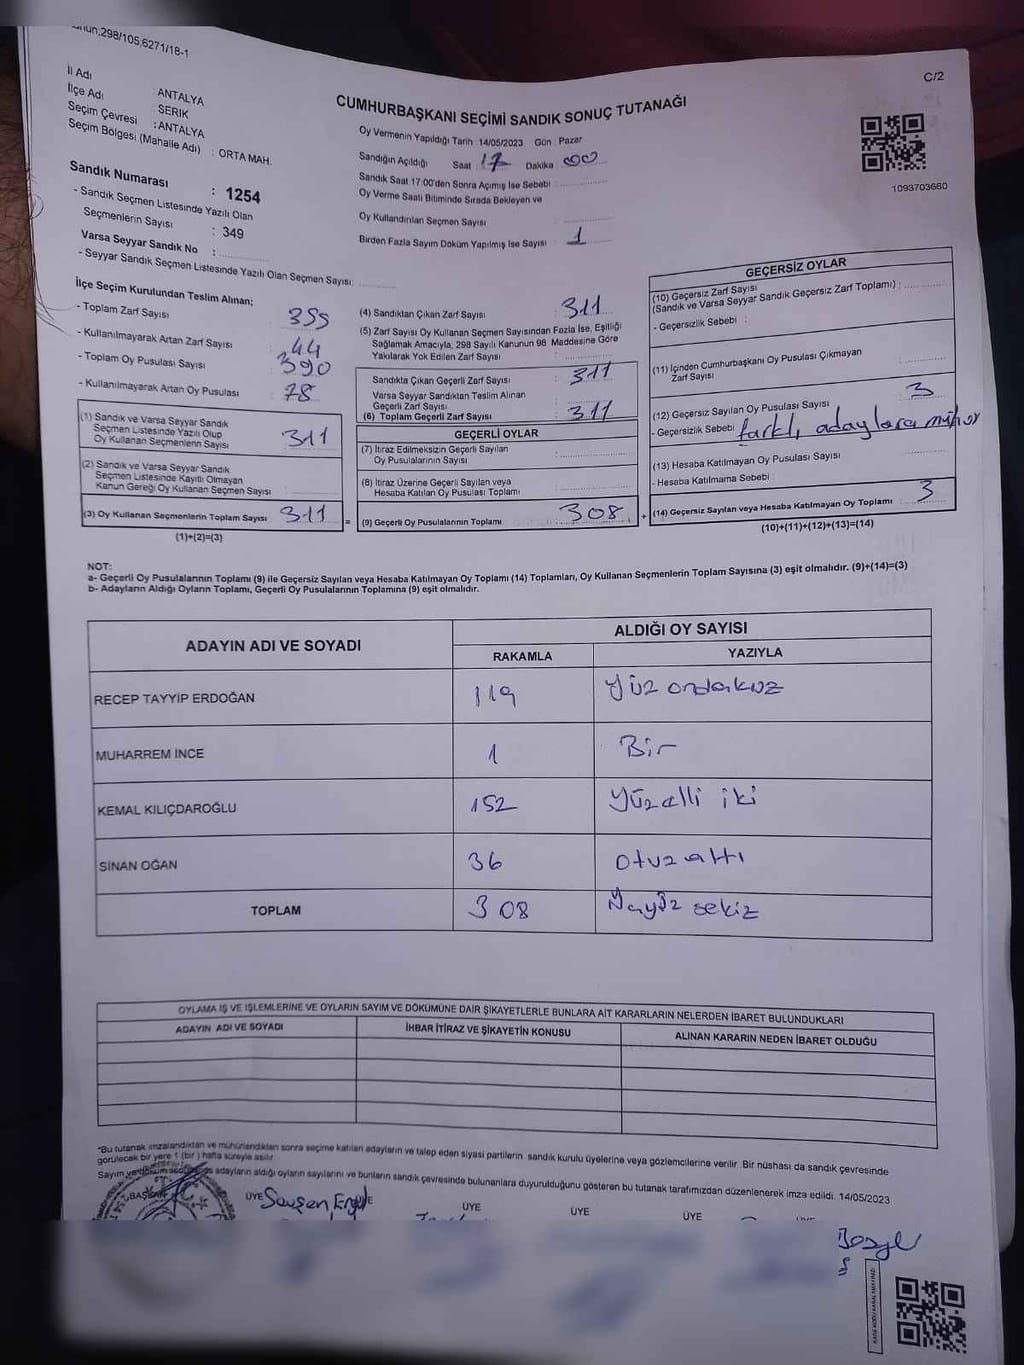 298/105,6271/18-1
C/2
İl Adı : ANTALYA
İlçe Adı : SERİK
Seçim Çevresi : ANTALYA
Seçim Bölgesi (Mahalle Adı) : ORTA MAH.
CUMHURBAŞKANI SEÇİMİ SANDIK SONUÇ TUTANAĞI
Oy Vermenin Yapıldığı Tarih : 14/05/2023 Gün : Pazar
Sandığın Açıldığı Saat : 17 Dakika : 00
Sandık Saat 17:00'den Sonra Açımış İse Sebebi :
Oy Verme Saati Bitiminde Sırada Bekleyen ve
Oy Kullandırılan Seçmen Sayısı
Birden Fazla Sayım Döküm Yapılmış İse Sayısı : 1
1093703660
Sandık Numarası : 1254
- Sandık Seçmen Listesinde Yazılı Olan
Seçmenlerin Sayısı : 349
Varsa Seyyar Sandık No :
- Seyyar Sandık Seçmen Listesinde Yazılı Olan Seçmen Sayısı:
İlçe Seçim Kurulundan Teslim Alınan;
- Toplam Zarf Sayısı : 355
- Kullanılmayarak Artan Zarf Sayısı : 44
- Toplam Oy Pusulası Sayısı : 390
- Kullanılmayarak Artan Oy Pusulası : 78
(1) Sandık ve Varsa Seyyar Sandık
Seçmen Listesinde Yazılı Olup
Oy Kullanan Seçmenlerin Sayısı : 311
(2) Sandık ve Varsa Seyyar Sandık
Seçmen Listesinde Kayıtlı Olmayan
Kanun Gereği Oy Kullanan Seçmen Sayısı :
(3) Oy Kullanan Seçmenlerin Toplam Sayısı : 311
(1)+(2)=(3)
(4) Sandıktan Çıkan Zarf Sayısı : 311
(5) Zarf Sayısı Oy Kullanan Seçmen Sayısından Fazla İse, Eşitliği
Sağlamak Amacıyla, 298 Sayılı Kanunun 98. Maddesine Göre
Yakılarak Yok Edilen Zarf Sayısı
Sandıkta Çıkan Geçerli Zarf Sayısı : 311
Varsa Seyyar Sandıktan Teslim Alınan
Geçerli Zarf Sayısı
(6) Toplam Geçerli Zarf Sayısı : 311
GEÇERLİ OYLAR
(7) İtiraz Edilmeksizin Geçerli Sayılan
Oy Pusulalarının Sayısı :
(8) İtiraz Üzerine Geçerli Sayılan veya
Hesaba Katılan Oy Pusulası Toplamı :
= (9) Geçerli Oy Pusulalarının Toplamı : 308 +
GEÇERSİZ OYLAR
(10) Geçersiz Zarf Sayısı
(Sandık ve Varsa Seyyar Sandık Geçersiz Zarf Toplamı) :
- Geçersizlik Sebebi :
(11) İçinden Cumhurbaşkanı Oy Pusulası Çıkmayan
Zarf Sayısı
(12) Geçersiz Sayılan Oy Pusulası Sayısı : 3
- Geçersizlik Sebebi : farklı adaylara mühür
(13) Hesaba Katılmayan Oy Pusulası Sayısı
- Hesaba Katılmama Sebebi :
(14) Geçersiz Sayılan veya Hesaba Katılmayan Oy Toplamı : 3
(10)+(11)+(12)+(13)=(14)
NOT:
a- Geçerli Oy Pusulalarının Toplamı (9) ile Geçersiz Sayılan veya Hesaba Katılmayan Oy Toplamı (14) Toplamları, Oy Kullanan Seçmenlerin Toplam Sayısına (3) eşit olmalıdır. (9)+(14)=(3)
b- Adayların Aldığı Oyların Toplamı, Geçerli Oy Pusulalarının Toplamına (9) eşit olmalıdır.
ADAYIN ADI VE SOYADI
ALDIĞI OY SAYISI
RAKAMLA YAZIYLA
RECEP TAYYİP ERDOĞAN 119 Yüz ondokuz
MUHARREM İNCE 1 Bir
KEMAL KILIÇDAROĞLU 152 Yüzelli iki
SİNAN OĞAN 36 otuz altı
TOPLAM 308 sekiz
OYLAMA İŞ VE İŞLEMLERİNE VE OYLARIN SAYIM VE DÖKÜMÜNE DAİR ŞİKAYETLERLE BUNLARA AİT KARARLARIN NELERDEN İBARET BULUNDUKLARI
ADAYIN ADI VE SOYADI İHBAR İTİRAZ VE ŞİKAYETİN KONUSU ALINAN KARARIN NEDEN İBARET OLDUĞU
*Bu tutanak imzalandıktan ve mühürlendikten sonra seçime katılan adayların ve talep eden siyasi partilerin sandık kurulu üyelerine veya gözlemcilerine verilir. Bir nüshası da sandık çevresinde
görülecek bir yere 1 (bir) hafta süreyle asılır.
Sayım ve döküm adayların aldığı oyların sayılarını ve bunların sandık çevresinde bulunanlara duyurulduğunu gösteren bu tutanak tarafımızdan düzenlenerek imza edildi. 14/05/2023
BAŞKAN ÜYE ÜYE ÜYE ÜYE ÜYE